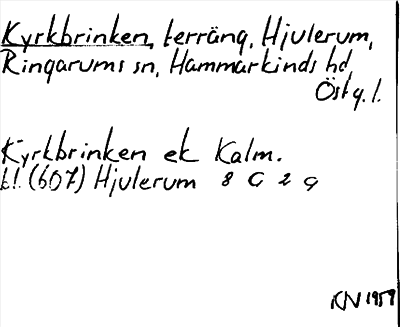 Kyrkbrinken, terräng, Hjulerum,
Ringarums sn, Hammarkinds hd,
Östg. l.
Kyrkbrinken ek Kalm.
bl. (607) Hjulerum 8 G 2 g
KN 1959